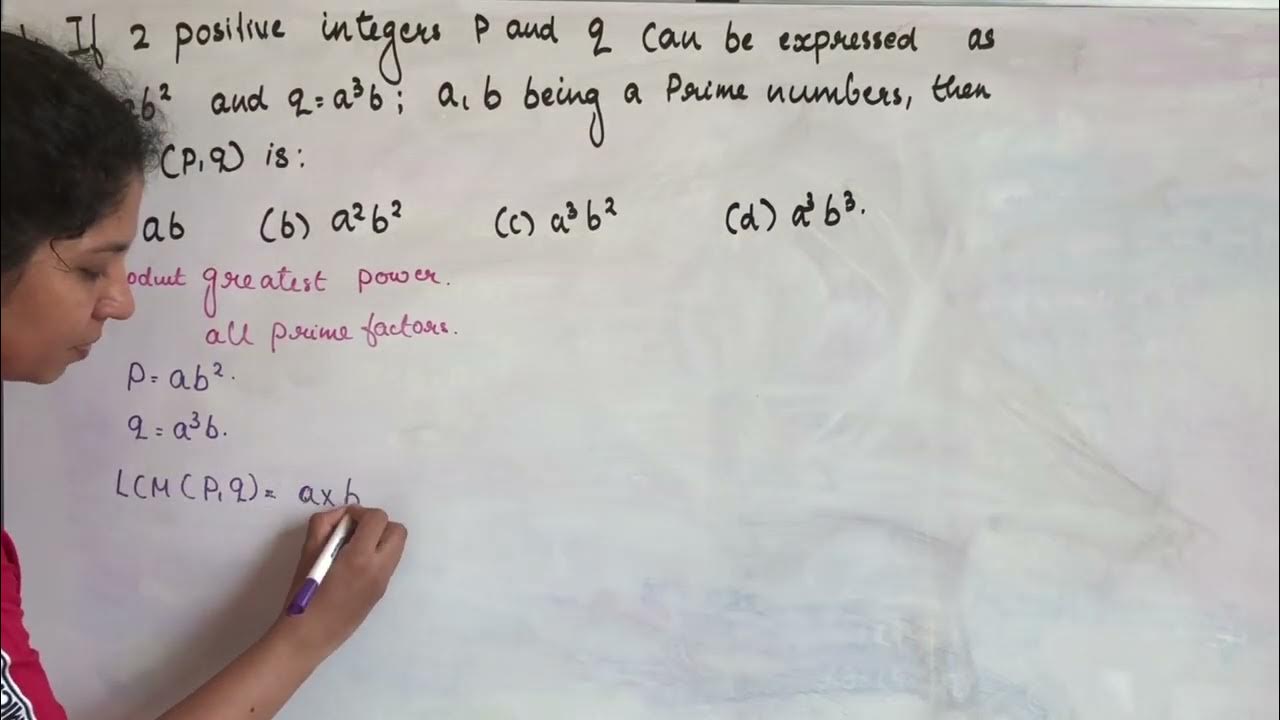 If 2 positive integers P and q can be expressed as
ab² and q = a³b; a, b being a Prime numbers, then
(P, q) is:
ab (b) a²b² (c) a³b² (d) a³b³.
oduct greatest power.
all prime factors.
P = ab².
q = a³b.
LCM (P, q) = a x b